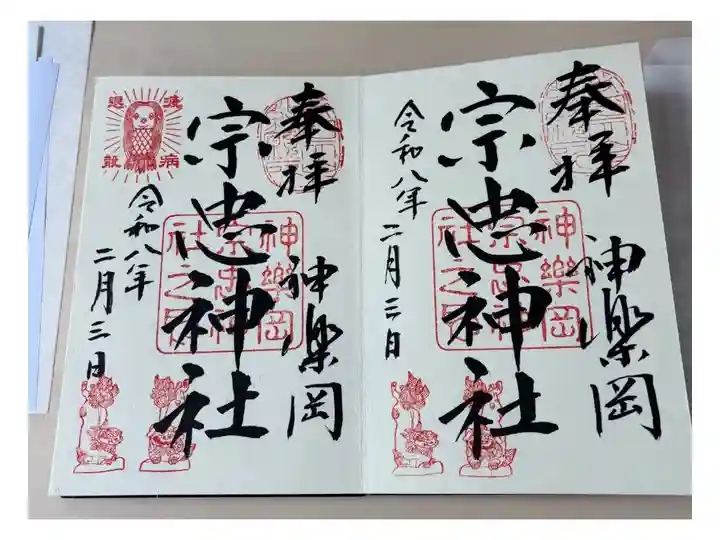 奉拝
神楽岡
神樂岡
宗忠神
社之印
宗忠神社
令和八年
二月三日
奉拝
神楽岡
神樂岡
宗忠神
社之印
宗忠神社
疫病
退散
令和八年
二月三日